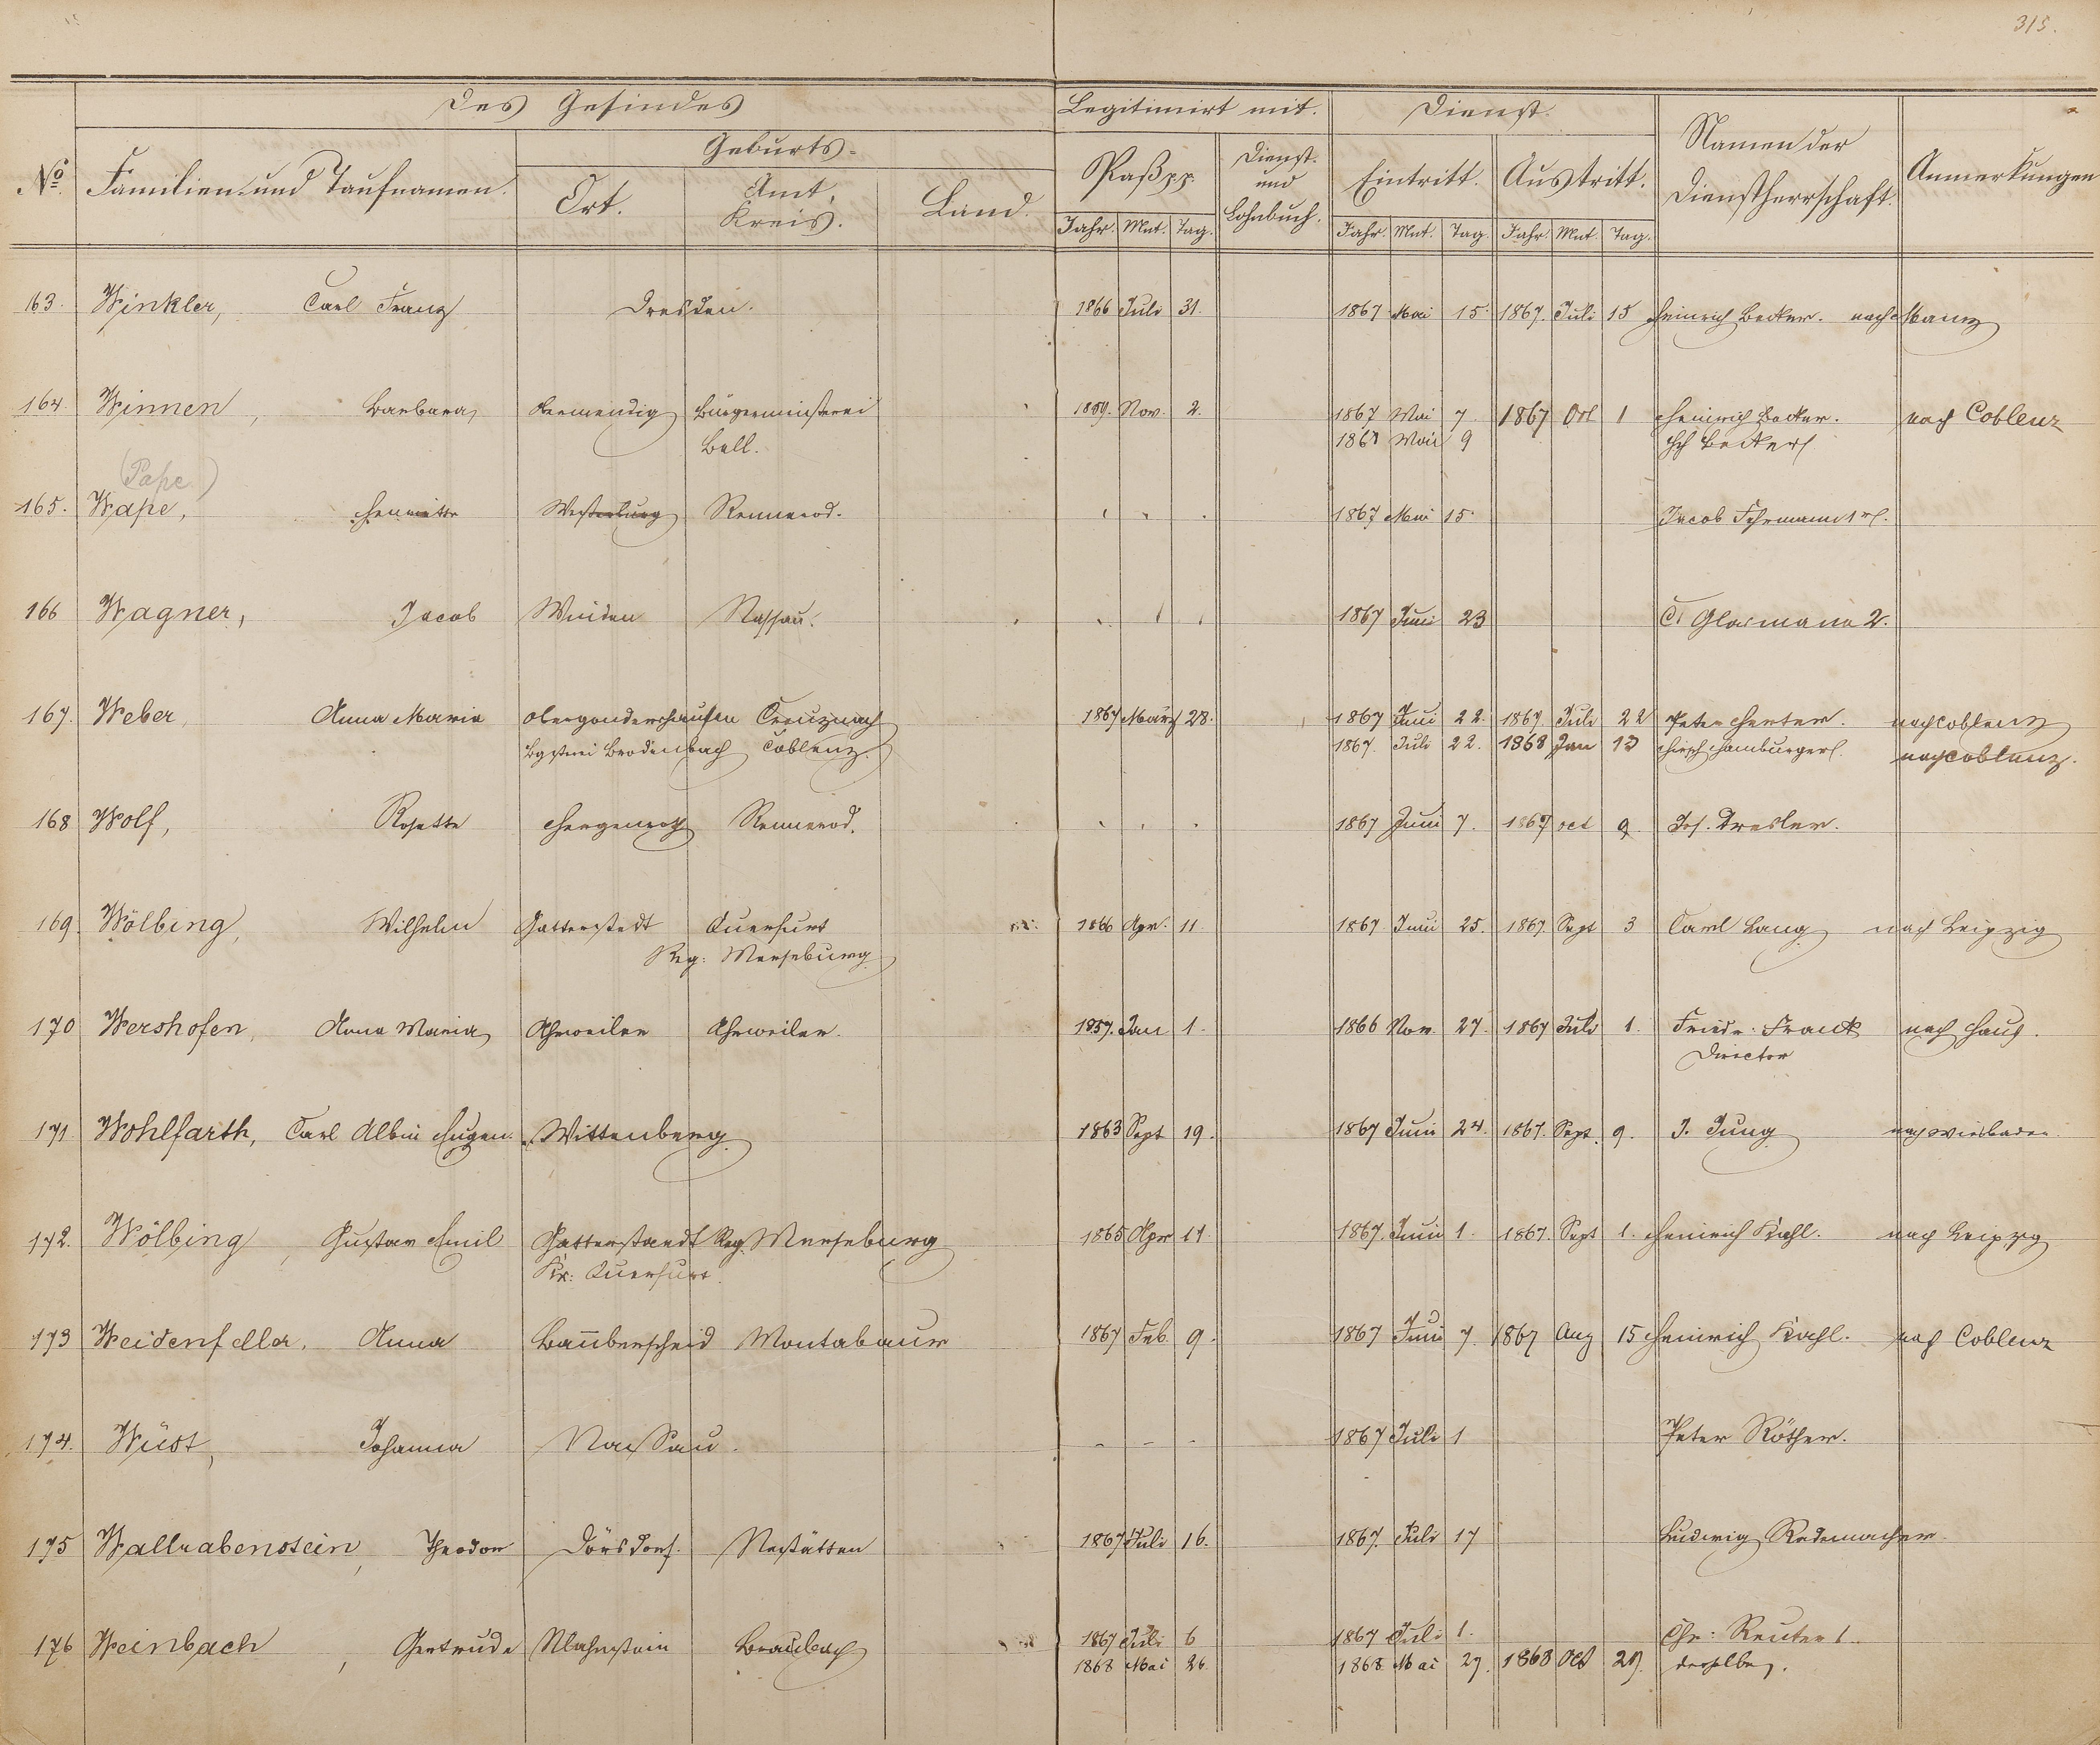 315.
Des Gesindes
Legitimirt mit.
Dienst.
No. Familien- und Taufnamen.
Geburts-
Ort. Amt, Kreis. Land.
Paß pp. Dienst- und Lohnbuch.
Eintritt. Austritt.
Namen der Dienstherrschaft.
Anmerkungen
Jahr. Mnt. Tag. Jahr. Mnt. Tag. Jahr. Mnt. Tag.
163. Winkler, Carl Franz Dresden. 1866 Juli 31. 1867 Mai 15. 1867. Juli 15 Heinrich Becker. nach Mainz
164. Winnen, Barbara Obermendig Bürgermeisterei 1859. Nov. 2. 1867 Mai 7. 1867 Oct 1 Heinrich Becker. nach Coblenz
Bell. 1867 Mai 9 Hch Becker
(Pape)
165. Wape, Henriette Westerburg Rennerod. 1867 Mai 15. Jacob
166 Wagner, Jacob Winden Nassau. 1867 Juni 23 2.
167. Weber, Anna Maria Obergondershausen Creuznach 1867 März 28. 1867 Juni 22. 1867. Juli 22 Peter Herber. nach Coblenz
Bgstrei Brodenbach Coblenz. 1867. Juli 22. 1868 Jan 13 Hirsch Hamburger nach Coblenz.
168 Wolf, Rosette Hergenroth Rennerod. 1867 Juni 7. 1867 oct 9. Jos. Dresler.
169. Wölbing, Wilhelm Gatterstedt Querfurt 1866 Apr. 11 1867 Juni 25. 1867. Sept 3 Carl Lang nach Leipzig
Reg: Merseburg
170 Wershofen, Anna Maria Ahrweiler Ahrweiler. 1857. Jan 1. 1866 Nov. 27. 1867 Juli 1. Friedr. Frank nach Haus.
Director
171 Wohlfarth, Carl Albin Eugen. Wittenberg. 1863 Sept 19. 1867 Juni 24. 1867. Sept. 9. J. Jung nach Wiesbaden
172. Wölbing, Gustav Emil Gatterstaedt Reg. Merseburg 1865 Apr 11. 1867. Juni 1. 1867. Sept 1. Heinrich Kahl. nach Leipzig
Kr: Querfurt.
173 Weidenfeller, Anna Baumberscheid Montabaur 1867 Feb. 9. 1867 Juni 7. 1867 Aug 15 Heinrich Kahl. nach Coblenz
174. Wüst, Johanna Nassau. - - - 1867 Juli 1 Peter Röther.
175 Wallrabenstein, Theodor Dörsdorf. Nastätten 1867 Juli 16. 1867. Juli 17 Ludwig Rademacher.
176 Weinbach, Gertrude Nlahnstein Braubach 1867 Juli 6 1867 Juli 1. Chr: Reuter 1.
1868 Mai 26. 1868 Mai 27. 1868 Oct 29. derselbe.